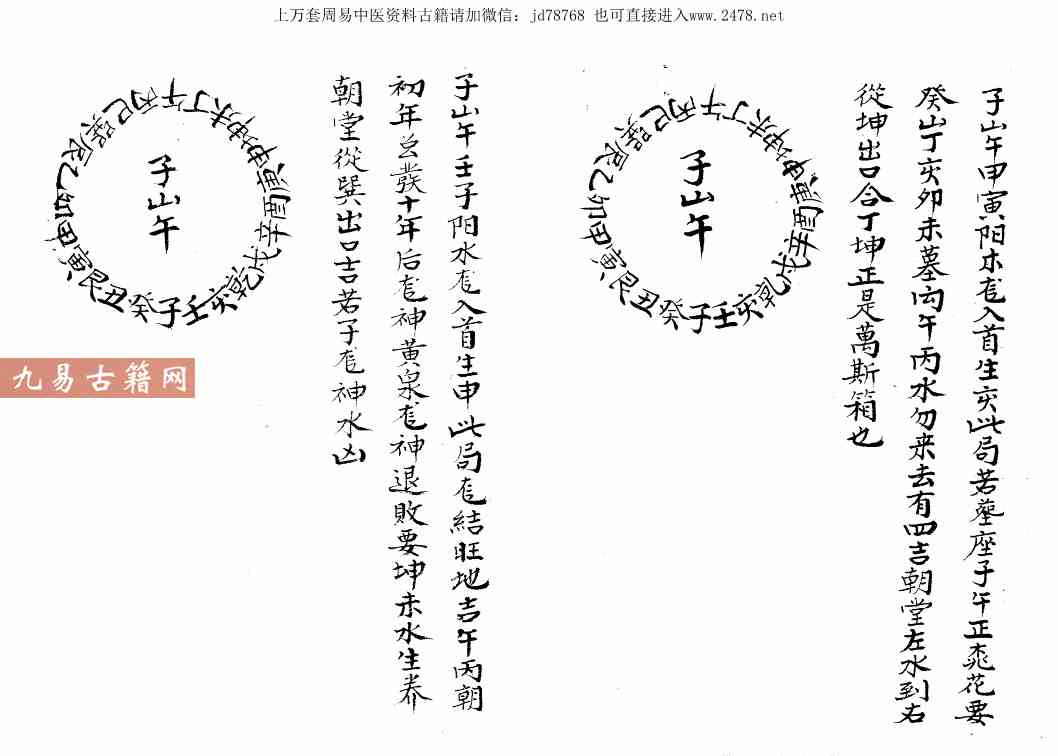 上万套周易中医资料古籍请加微信：jd78768 也可直接进入www.2478.net
子山午甲寅阳木龙入首生亥此局若塋座子午正桃花要
癸山丁亥卯未墓向午丙水勿来去有四吉朝堂左水到右
從坤出口合丁坤正是萬斯箱也
子山午
丙午丁未坤申庚酉辛戌乾亥壬子癸丑艮寅甲卯乙辰巽巳
子山午壬子阳水龙入首生申此局龙結旺地吉午丙朝
初年公發十年后龙神黄泉龙神退敗要坤未水生养
朝堂從巽出口吉若子龙神水凶
子山午
丙午丁未坤申庚酉辛戌乾亥壬子癸丑艮寅甲卯乙辰巽巳
九易古籍网